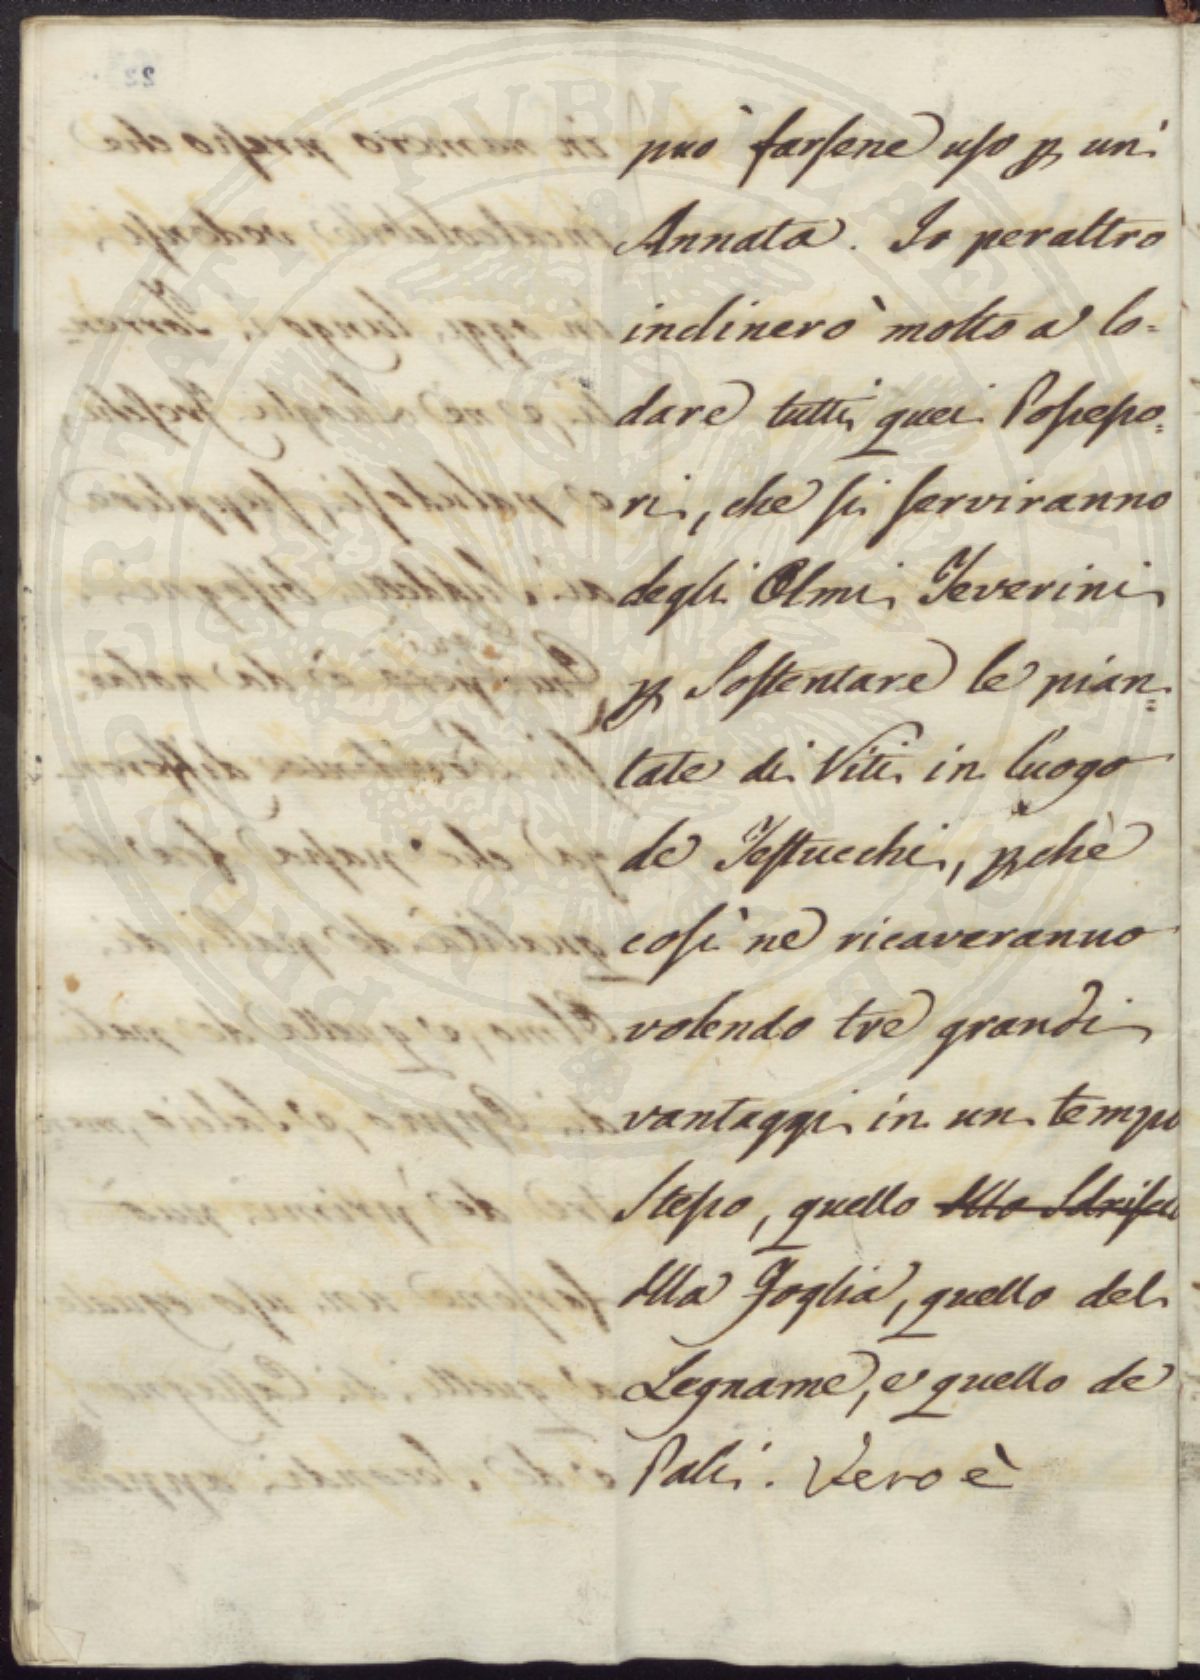 può farsene uso p un'
Annata. Io peraltro
inclinerò molto a lo=
dare tutti quei Possesso=
ri, che si serviranno
degli Olmi Teverini
p Sostentare le pian=
tate di Viti in luogo
de Testucchi, pchè
così ne ricaveranno
volendo trè grandi
vantaggi in un tempo
Stesso, quello
dlla Foglia, quello del
Legname, e quello de
Pali. Vero è